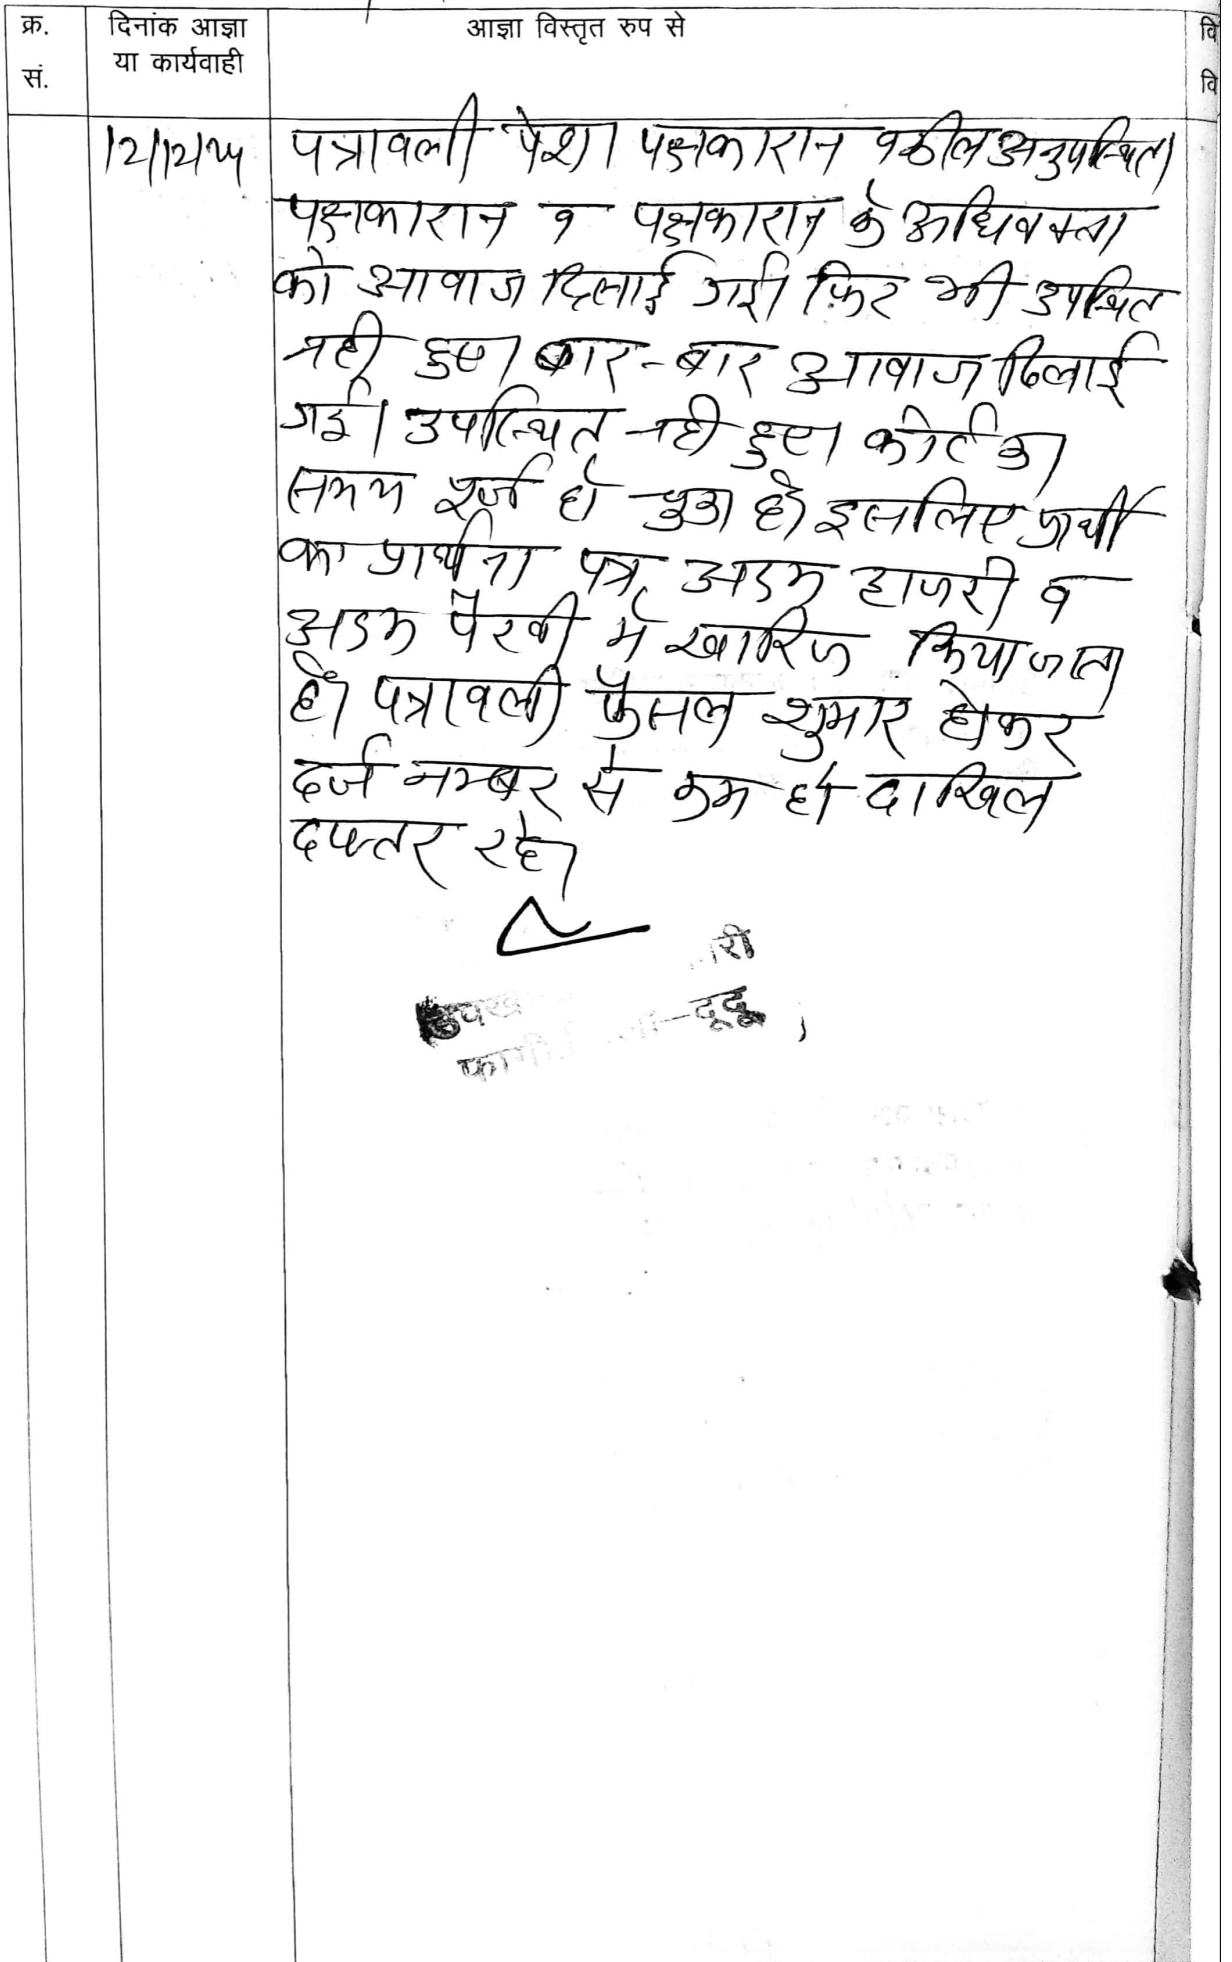 क्र. दिनांक आज्ञा आज्ञा विस्तृत रुप से वि
सं. या कार्यवाही वि
12/12/25 पत्रावली पेश। पक्षकारान वकील अनुपस्थित।
पक्षकारान व पक्षकारान के अधिवक्ता
को आवाज दिलाई गई। फिर भी उपस्थित
नही हुए। बार-बार आवाज दिलाई
गई। उपस्थित नही हुए। कोर्ट का
समय पूर्ण हो चुका है। इसलिए प्रार्थी
का प्रार्थना पत्र अदम हाजरी व
अदम पैरवी में खारिज किया जाता
है। पत्रावली फैसल शुमार होकर
दर्ज नम्बर से कम हो दाखिल
दफ्तर रहे।
री
उपख दूदू